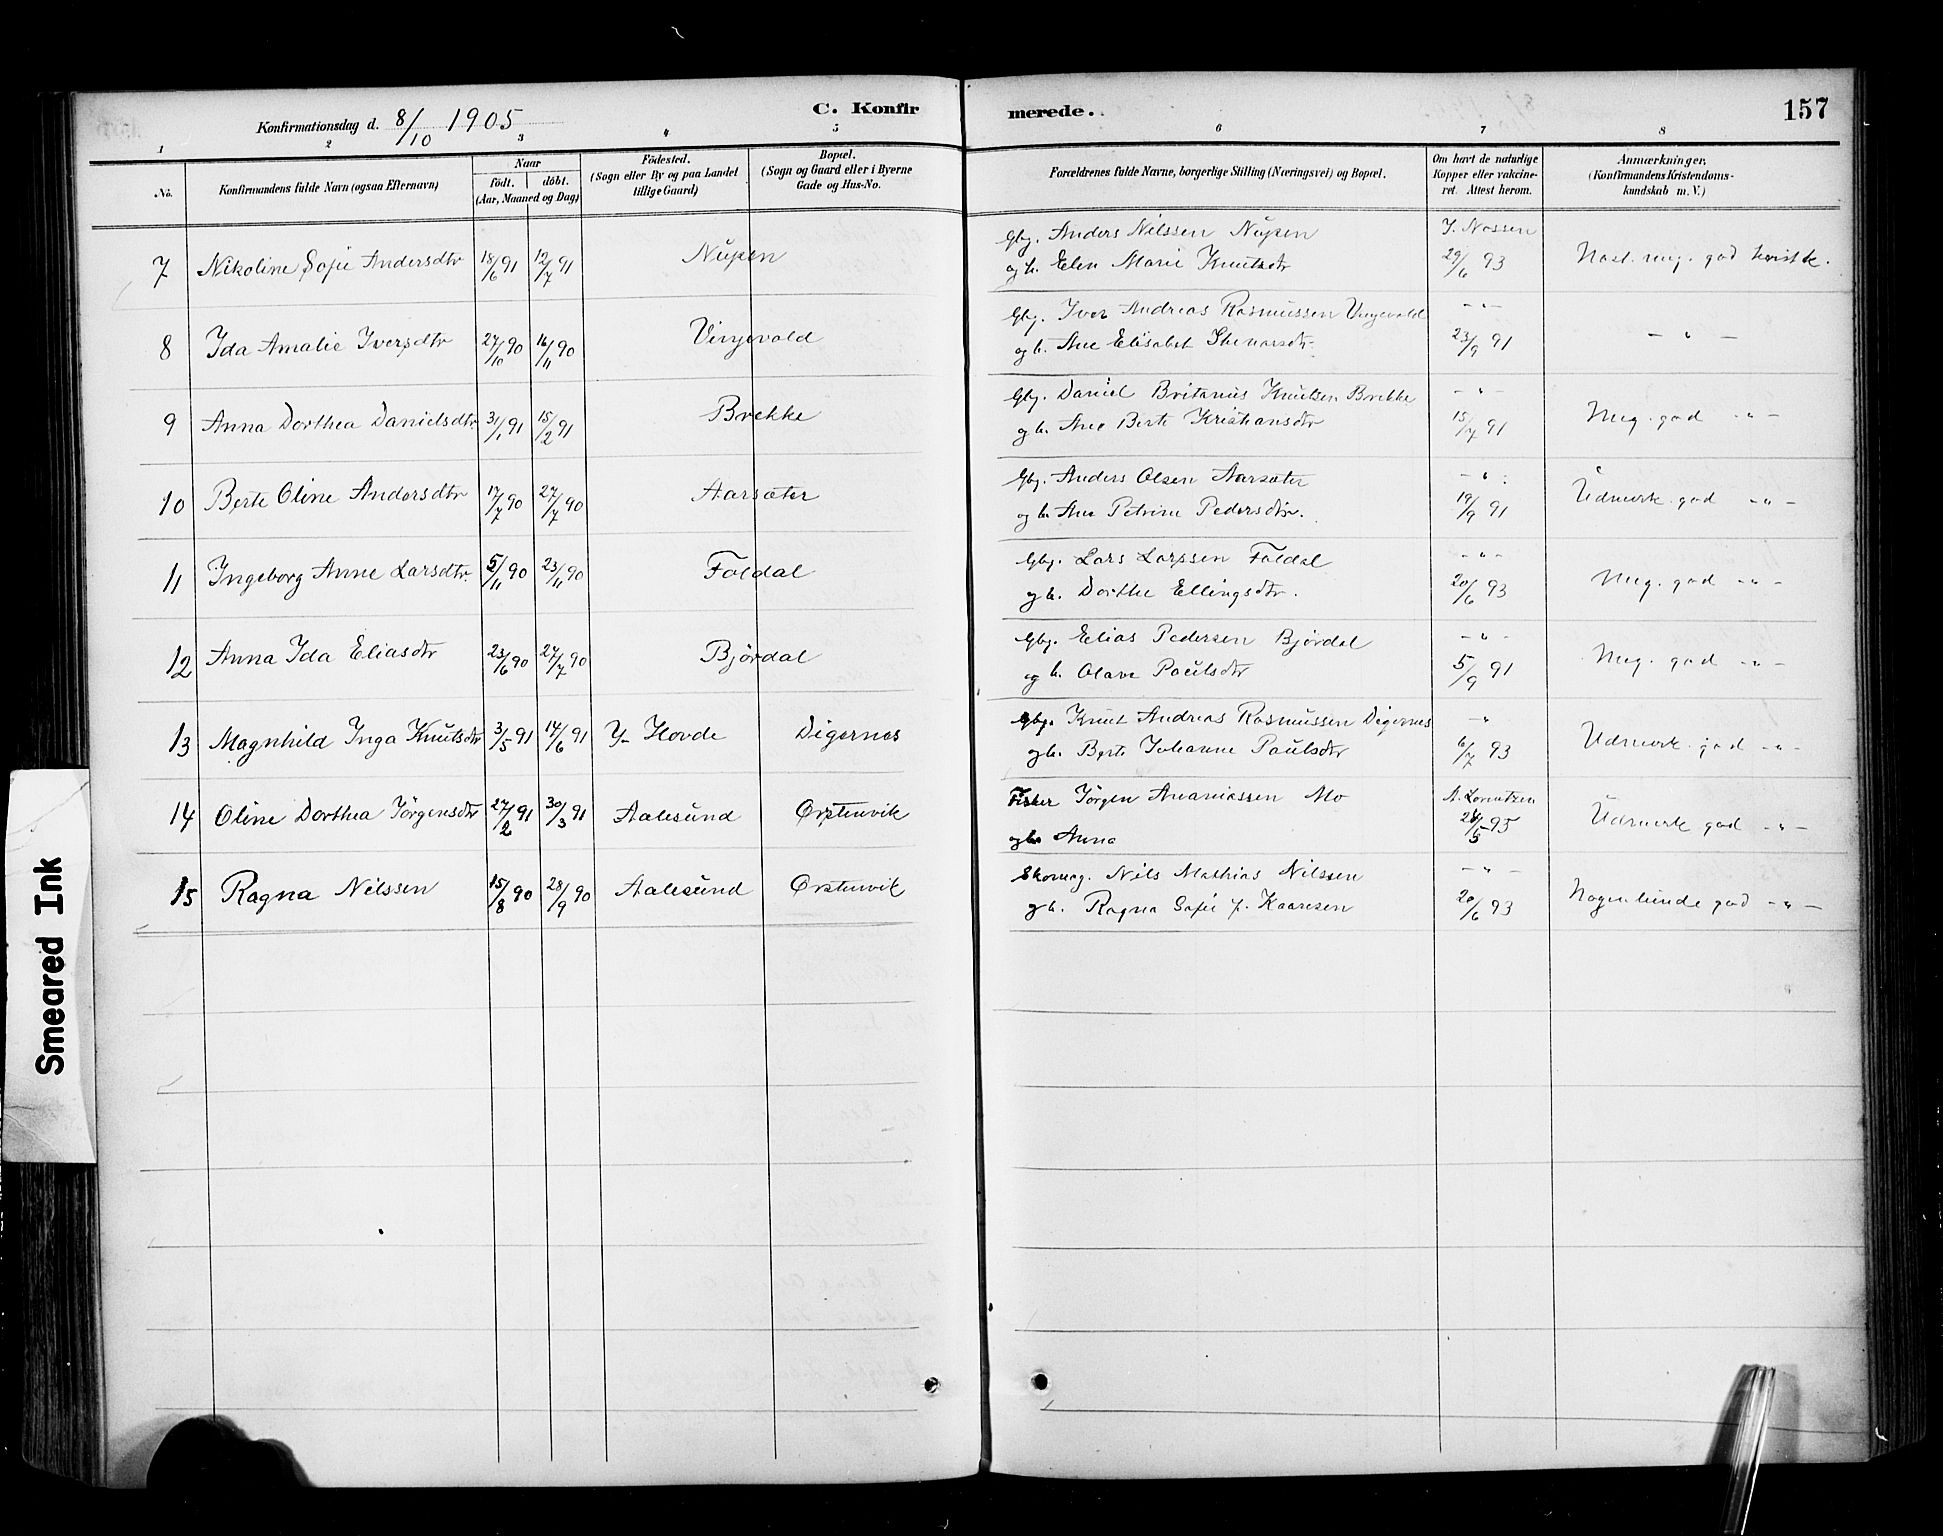 Konfirmationsdag d. 8/10 1905
C. Konfirmerede.
157
1 2 3 4 5 6 7 8
No.
Konfirmandens fulde Navn (ogsaa Efternavn)
Naar
födt. döbt.
(Aar, Maaned og Dag)
Födested.
(Sogn eller By og paa Landet
tillige Gaard)
Bopæl.
(Sogn og Gaard eller i Byerne
Gade og Hus-No.
Forældrenes fulde Navne, borgerlige Stilling (Næringsvei) og Bopæl.
Om havt de naturlige
Kopper eller vakcine-
ret. Attest herom.
Anmærkninger,
(Konfirmandens Kristendoms-
kundskab m. V.)
7 Nikoline Sofie Andersdtr 18/6 91 12/7 91 Nupen
Gbg. Anders Nilssen Nupen
og h. Elen Marie Knutsdtr
J. Nossen
29/6 93
Nast. meg. god krist k.
8 Ida Amalie Iversdtr 27/10 90 16/11 90 Vinjevold
Gbg. Iver Andreas Rasmussen Vinjevold
og h. Ane Elisabet
- " -
23/9 91
- " -
9 Anna Dorthea Danielsdtr 31/1 91 15/2 91 Brekke
Gbg. Daniel Britanus Knutsen Brekke
og h. Ane Berte Kristiansdtr
- " -
15/7 91
Meg. god - " -
10 Berte Oline Andersdtr 17/7 90 27/7 90 Aarsæter
Gbg. Anders Olsen Aarsæter
og h. Ane Petrine Pedersdtr.
- " -
19/9 91
Udmerk. god - " -
11 Ingeborg Anne Larsdtr. 5/11 90 23/11 90 Foldal
Gbg. Lars Larssen Foldal
og h. Dorthe Ellingsdtr.
- " -
20/6 93
Meg. god - " -
12 Anna Ida Eliasdtr 23/6 90 27/7 90 Björdal
Gbg. Elias Pedersen Björdal
og h. Olave Paulsdtr
- " -
5/9 91
Meg. god - " -
13 Magnhild Inga Knutsdtr 3/5 91 14/6 91 Y- Hovde Digernes
Gbg. Knut Andreas Rasmussen Digernes
og h. Berte Johanne Paulsdtr
- " -
6/7 93
Udmerk. god - " -
14 Oline Dorthea Jörgensdtr 27/2 91 30/3 91 Aalesund Ørstenvik
Fisker Jörgen Ananiassen Mo
og h. Anna
A. Lorentzen
28/5 95
Udmerk god - " -
15 Ragna Nilssen 15/8 90 28/9 90 Aalesund Ørstenvik
Skomag. Nils Mathias Nilssen
og h. Ragna Sofie f. Kaaresen
- " -
20/6 93
Nogenlunde god - " -
Smeared Ink